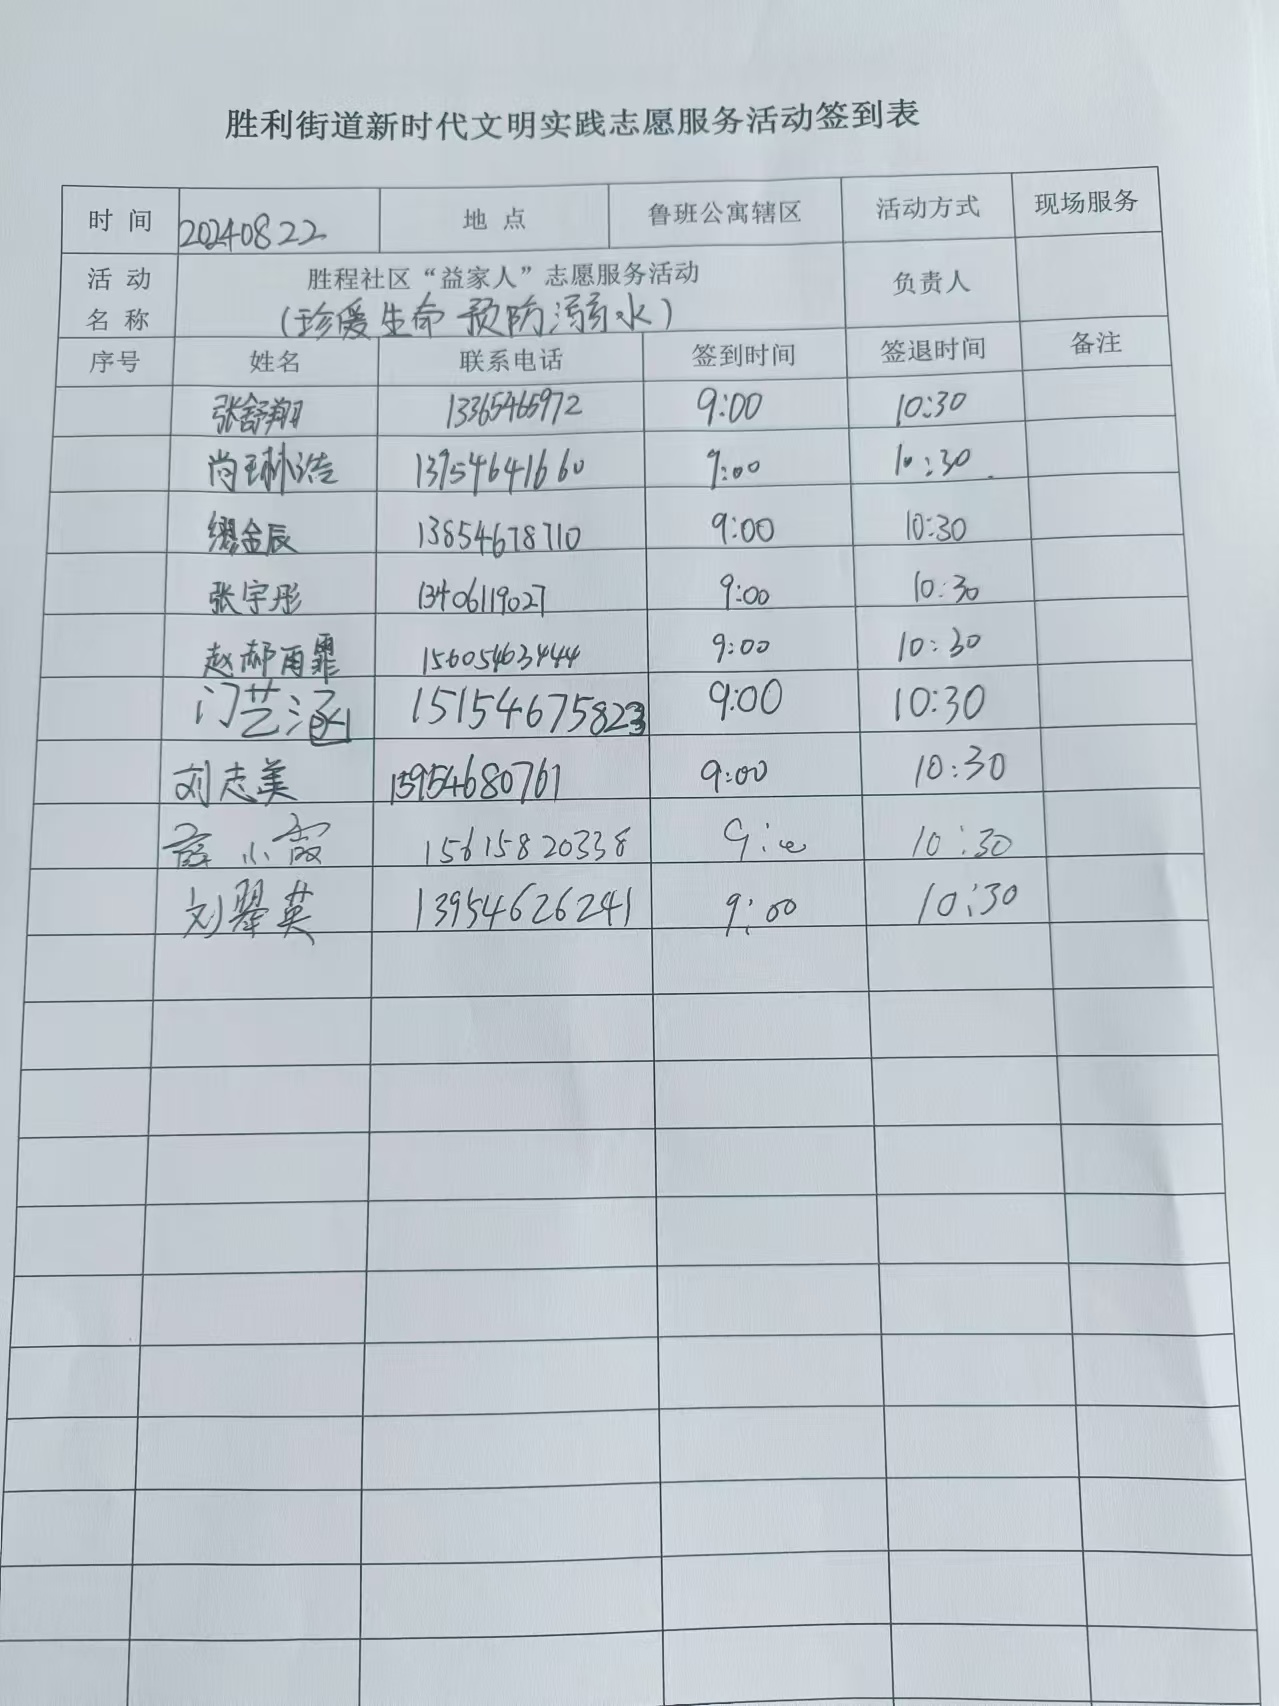 胜利街道新时代文明实践志愿服务活动签到表
时 间 20240822 地 点 鲁班公寓辖区 活动方式 现场服务
活 动 名 称 胜程社区“益家人”志愿服务活动 负责人
(珍爱生命 预防溺水)
序号 姓名 联系电话 签到时间 签退时间 备注
张舒翔 13365465972 9:00 10:30
尚琳浩 13954641660 9:00 10:30
缪金辰 13854678710 9:00 10:30
张宇彤 13406119027 9:00 10:30
赵郝雨霏 15605463444 9:00 10:30
门艺涵 15154675823 9:00 10:30
刘志美 13954680761 9:00 10:30
薛小霞 15615820338 9:00 10:30
刘翠英 13954626241 9:00 10:30